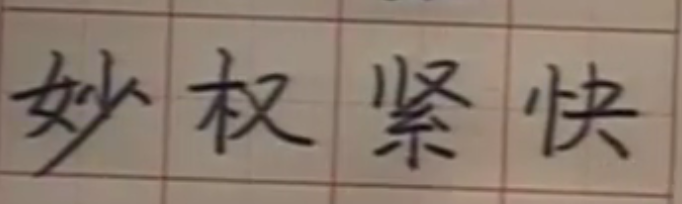 妙权紧快